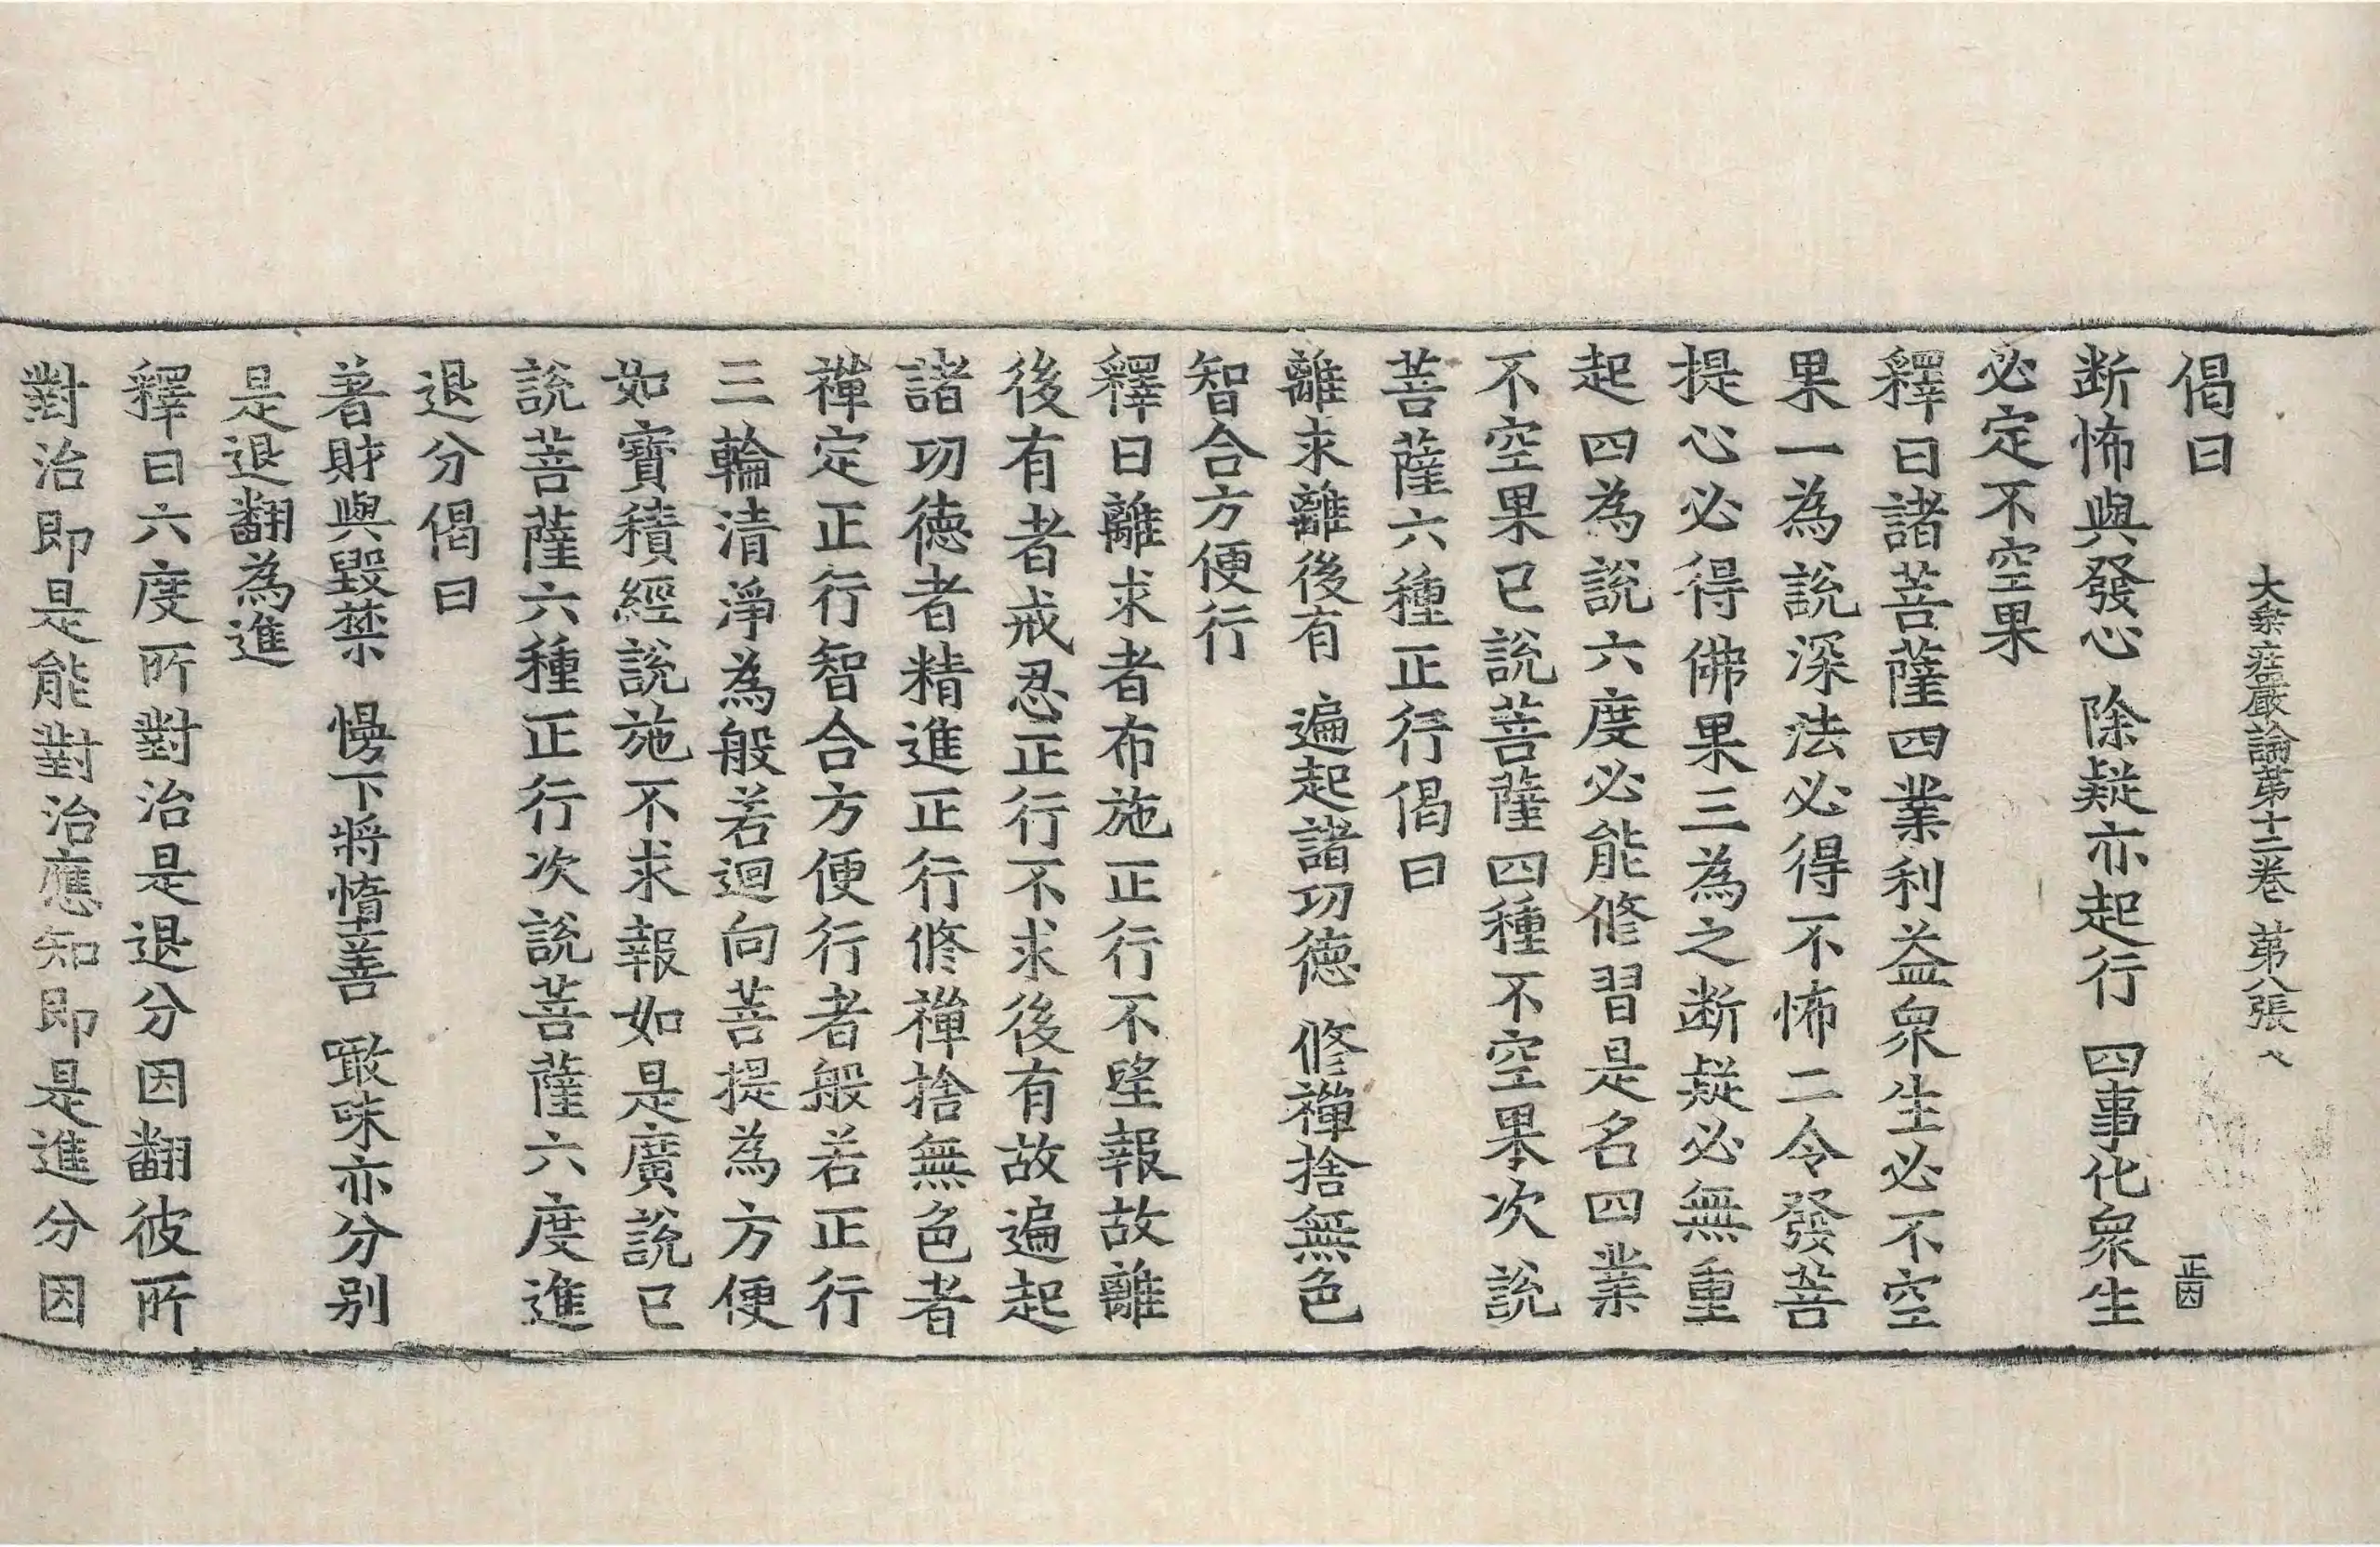 大乗荘嚴論第十二卷 第八張 へ
偈曰
正因
断怖與發心 除疑亦起行 四事化衆生
必定不空果
釋曰諸菩薩四業利益衆生必不空
果一為說深法必得不怖二令發菩
提心必得佛果三為之断疑必無重
起四為說六度必能修習是名四業
不空果已說菩薩四種不空果次說
菩薩六種正行偈曰
離求離後有 遍起諸功德 修禪捨無色
智合方便行
釋曰離求者布施正行不望報故離
後有者戒忍正行不求後有故遍起
諸功德者精進正行修禪捨無色者
禪定正行智合方便行者般若正行
三輪清淨為般若迴向菩提為方便
如寶積經說施不求報如是廣說已
說菩薩六種正行次說菩薩六度進
退分偈曰
著財與毀禁 慢下將惰善 噉味亦分别
是退翻為進
釋曰六度所對治是退分因翻彼所
對治即是能對治應知即是進分因